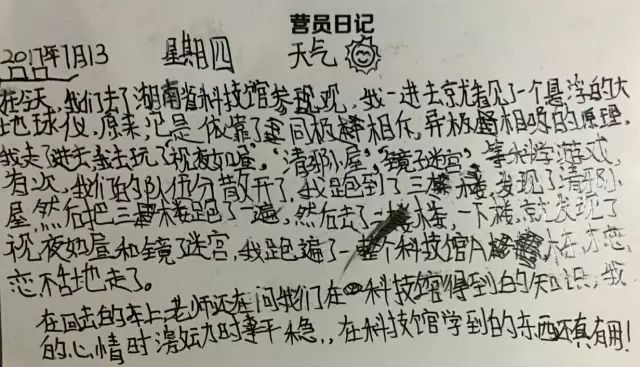 营员日记
2017年7月13 星期四 天气
在今天,我们去了湖南省科技馆参观,我一进去就看见了一个悬浮的大
地球仪.原来它是依靠了同极相斥,异极相吸的原理,
我走了进去,我去玩了"视夜如昼","清邪小屋","镜子迷宫",等科学游戏,
有次,我们的队伍分散开了,我跑到了三楼,发现了清邪小
屋,然后把三楼跑了一遍,然后去了一楼,一下楼,就发现了
视夜如昼和镜子迷宫,我跑遍了一整个科技馆A栋,才恋
恋不舍地走了。
在回去的车上老师还在问我们在科技馆得到的知识,我
的心情时激动时平稳,,在科技馆学到的东西还真有用!